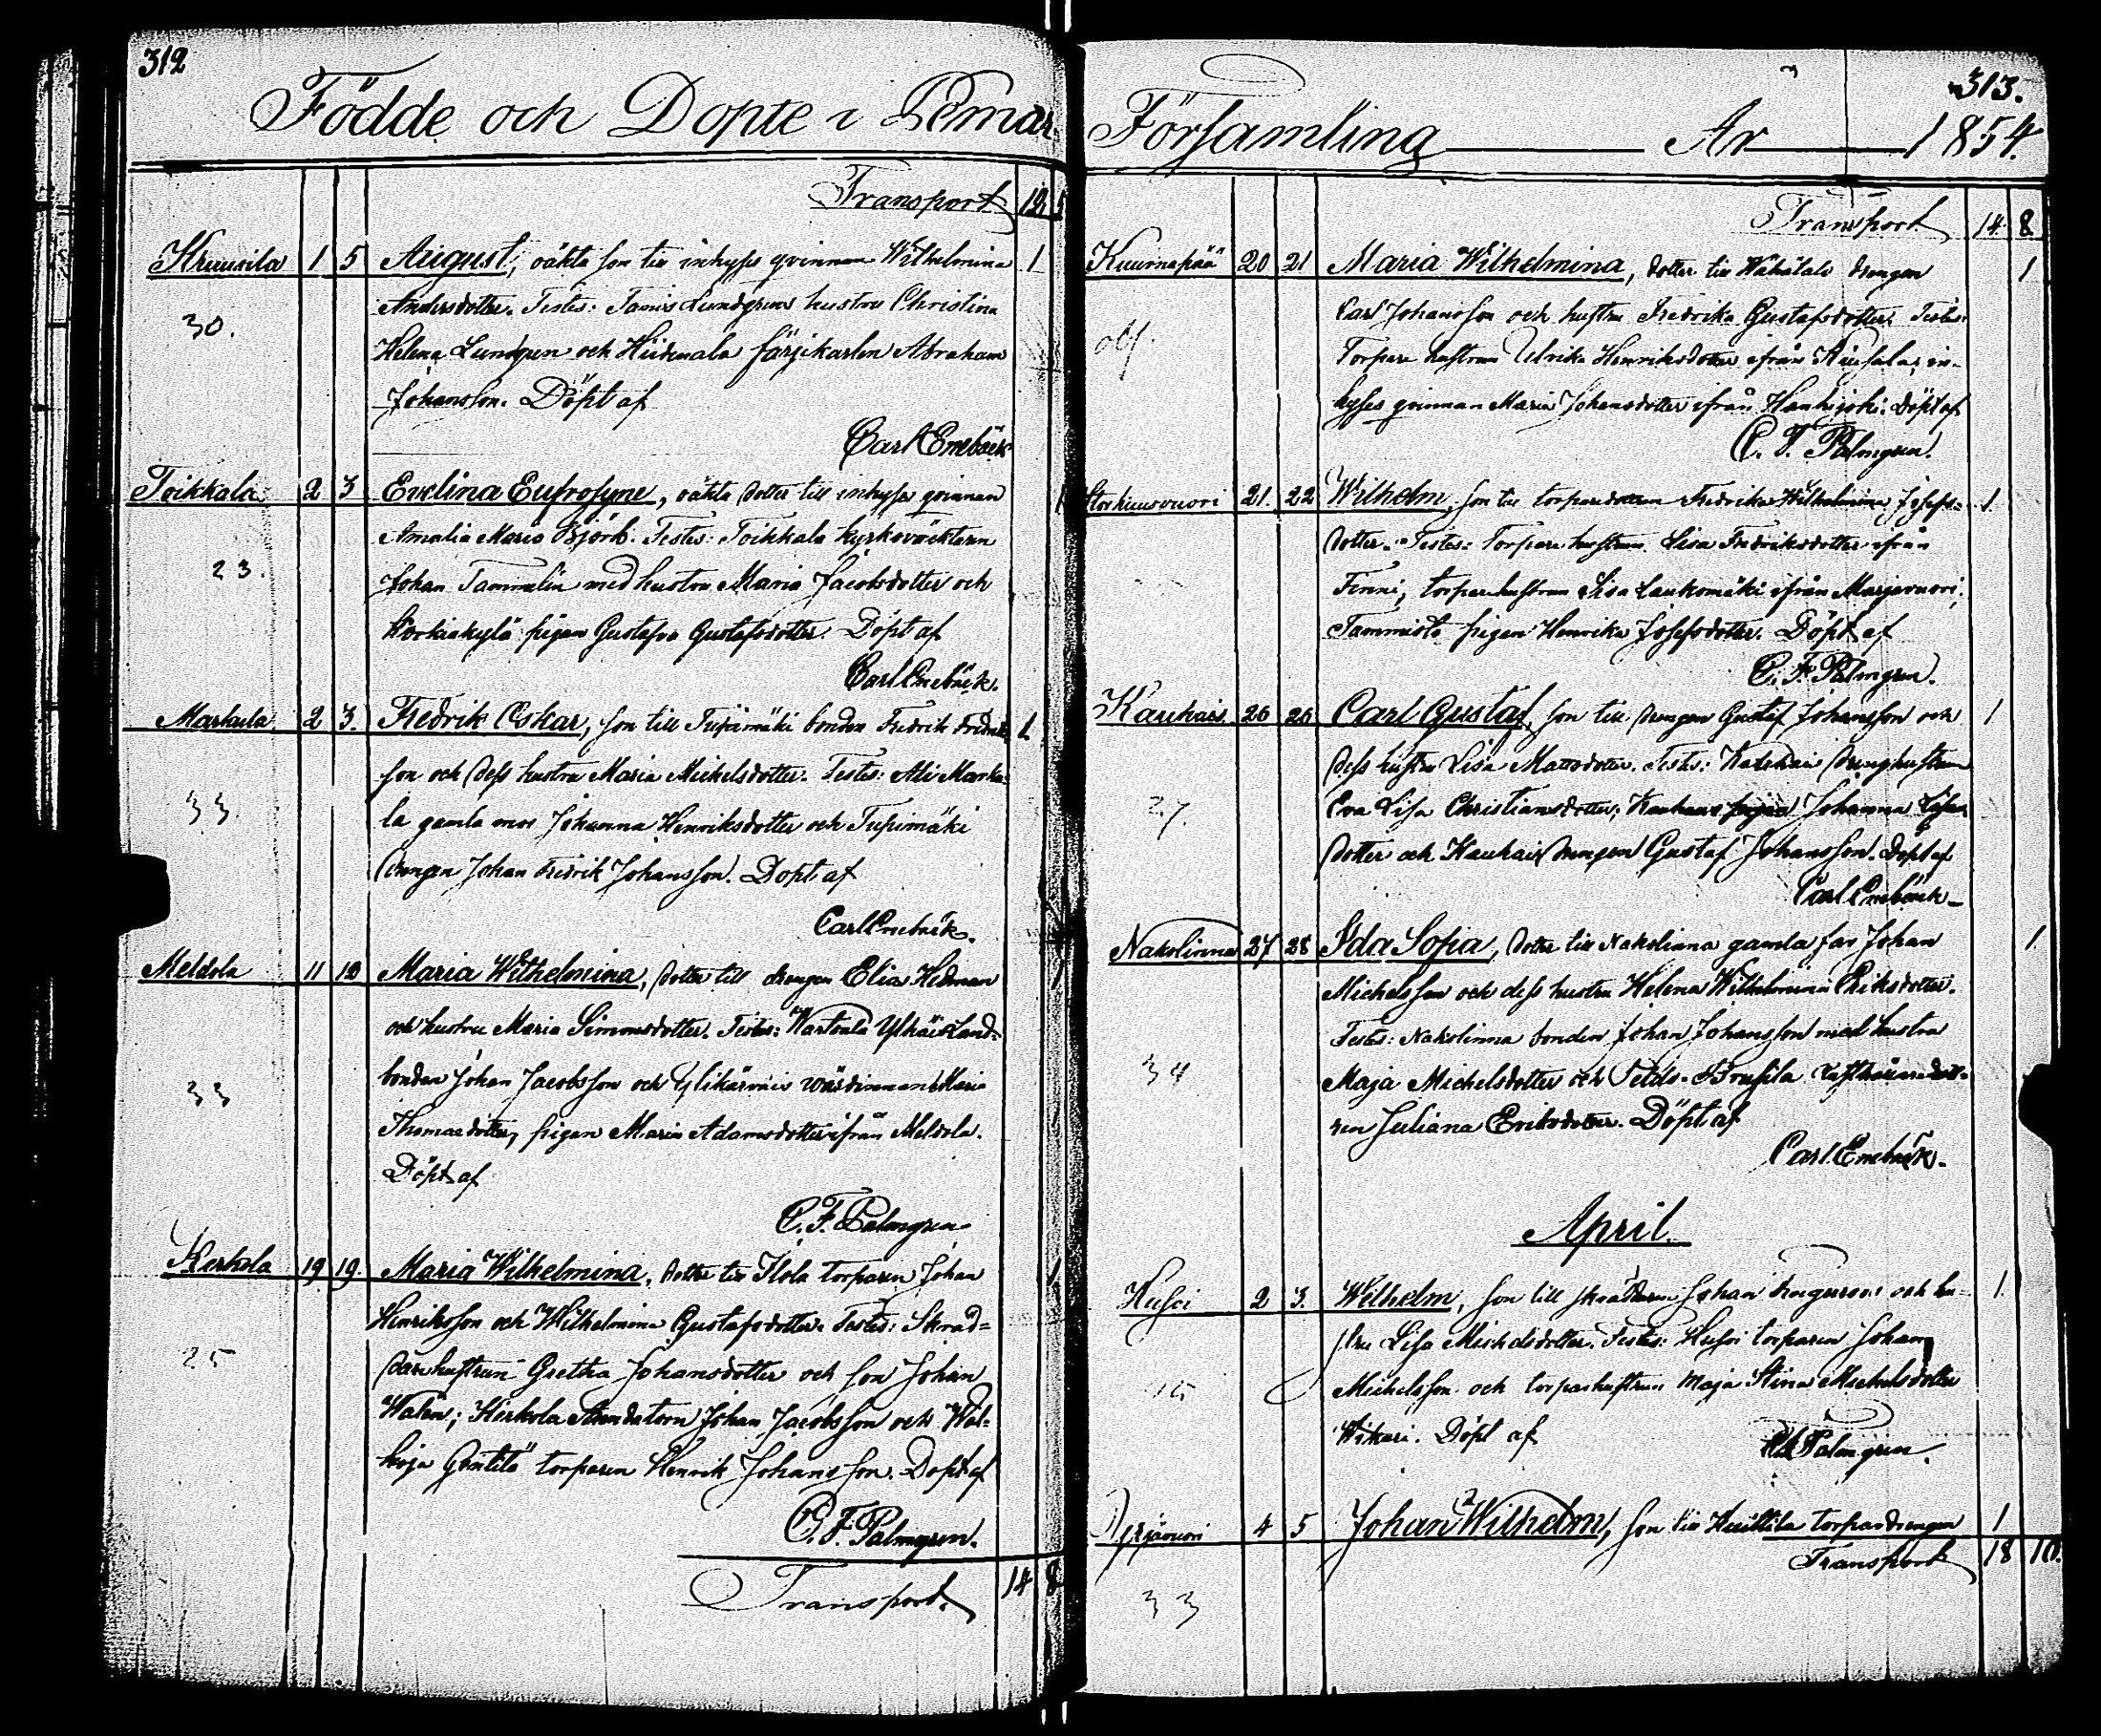 312
Födde och Dopte i Pemar
Transport 12 5
Kruusila 1 5 August, oäkta son till inhyses qvinnan Wilhelmina 1
Andersdotter. Testes: Tomis Lundgrens hustru Christina
30.
Helena Lundgren och Hiidenala färjekarlen Abraham
Johansson. Döpt af
Carl Enebäck
Toikkala 2 3 Evelina Eufrosyne, oäkta dotter till inhyses qvinnan 1
Amalia Maria Björk. Testes: Toikkala kyrkoväcktaren
23.
Johan Tammelin med hustru Maria Jacobsdotter och
pigan Gustafva Gustafsdotter. Döpt af
Carl Enebäck.
Markula 2 3. Fredrik Oskar, son till bonden Fredrik Fredriks 1
son och dess hustru Maria Michelsdotter. Testes: Ali Marku
33
la gamla mor Johanna Henriksdotter och
drengen Johan Fredrik Johansson. Döpt af
Carl Enebäck.
Meldola 11 12 Maria Wilhelmina, dotter till drengen Elias Hedman 1
och hustru Maria Simonsdotter. Testes: Land-
bonden Johan Jacobsson och värdinnan Maria
33
Thomasdotter, pigan Maria Adamsdotter ifrån Meldola.
Döpt af
C. F. Palmgren
Kerkola 19 19. Maria Wilhelmina, dotter till Isola torparen Johan 1.
Henriksson och Wilhelmina Gustafsdotter. Testes: Skräd-
25
darehustrun Gretha Johansdotter och son Johan
Walen; Kerkola Arendatorn Johan Jacobsson och Wal-
koja torparen Henrik Johansson. Döpt af
C. F. Palmgren.
Transport. 14 8
313.
Församling År 1854.
Transport 14 8
Kuurnapää 20 21 Maria Wilhelmina, dotter till drengen 1
Carl Johansson och hustru Fredrika Gustafsdotter. Testes:
Torpare hustrun Ulrika Henriksdotter ifrån in-
hyses qvinnan Maria Johansdotter ifrån Hankijoki. Döpt af
C. F. Palmgren.
21. 22 Wilhelm, son till Fredrika Wilhelmina Josefs- 1.
dotter. Testes: Torpare hustrun Lisa Fredriksdotter ifrån
Finni, torpare hustrun Lisa Laukomäki ifrån Marjavuori,
Tammisto pigan Henrika Josefsdotter. Döpt af
C. F. Palmgren.
Kauhais 26 26 Carl Gustaf, son till drengen Gustaf Johansson och 1
dess hustru Lisa Mattsdotter. Testes: Kauhais drenghustrun
27.
Eva Lisa Christiansdotter; Kauhais pigan Johanna
dotter och Kauhais drengen Gustaf Johansson. Döpt af
Carl Enebäck
Nakolinna 27 28 Ida Sofia, dotter till Nakolinna gamla far Johan 1.
Michelsson och dess hustru Helena Wilhelmina Eriksdotter.
Testes: Nakolinna bonden Johan Johansson med hustru
34
Maja Michelsdotter och
ren Juliana Eriksdotter. Döpt af
Carl Enebäck.
April.
Husoi 2 3. Wilhelm, son till Johan och hu- 1.
stru Lisa Michelsdotter. Testes: Husoi torparen Johan
Michelsson och torparehustrun Maja Stina Michelsdotter
Wikari. Döpt af C. F. Palmgren.
4 5 Johan Wilhelm, son till torparedrengen 1
Transport 18 10.
33